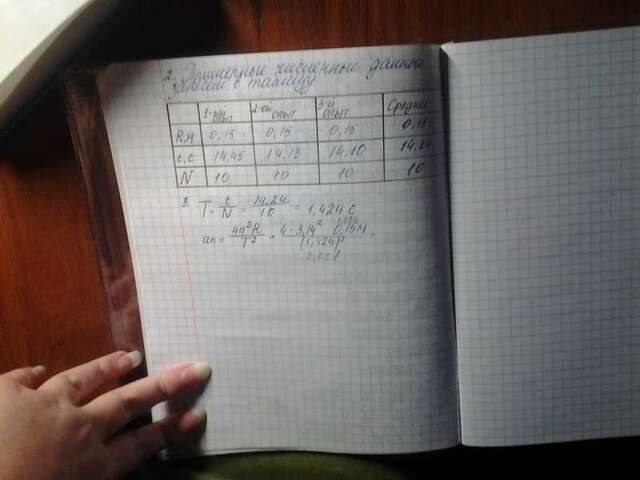 2. Примерные численные данные
запишем в таблицу
1-ый опыт 2-ой опыт 3-й опыт Среднее
R,м 0,15 0,15 0,15 0,15
t,c 14,45 14,18 14,10 14,24
N 10 10 10 10
3. T = t/N = 14,24/10 = 1,424 c
an = 4π²R/T² = 4·3,14² 0,15м/(1,424)² =